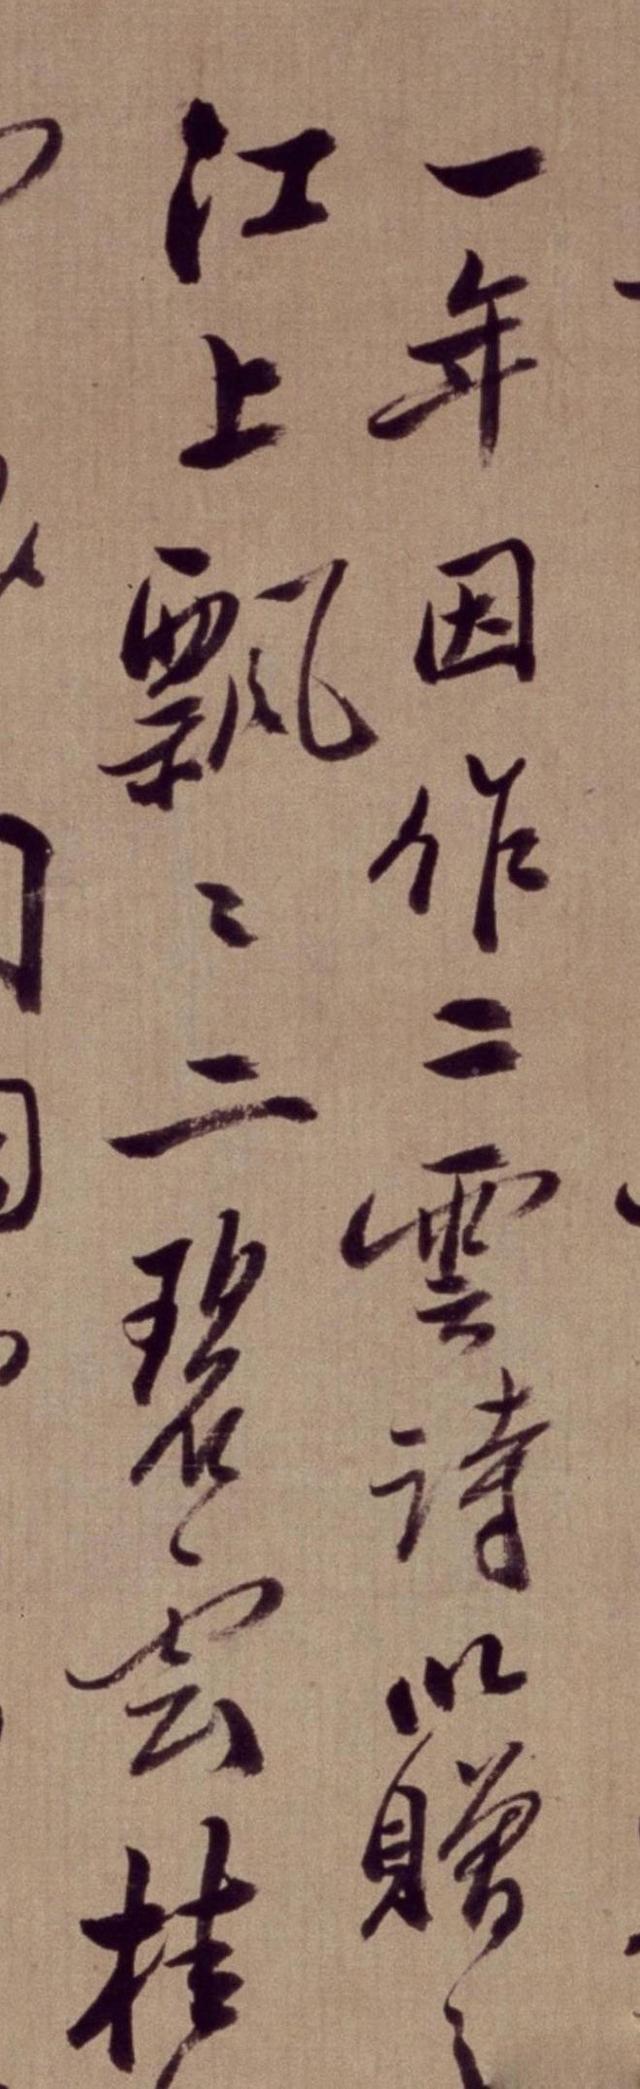 一年因作二雲詩以贈之
江上飄〻二碧雲桂